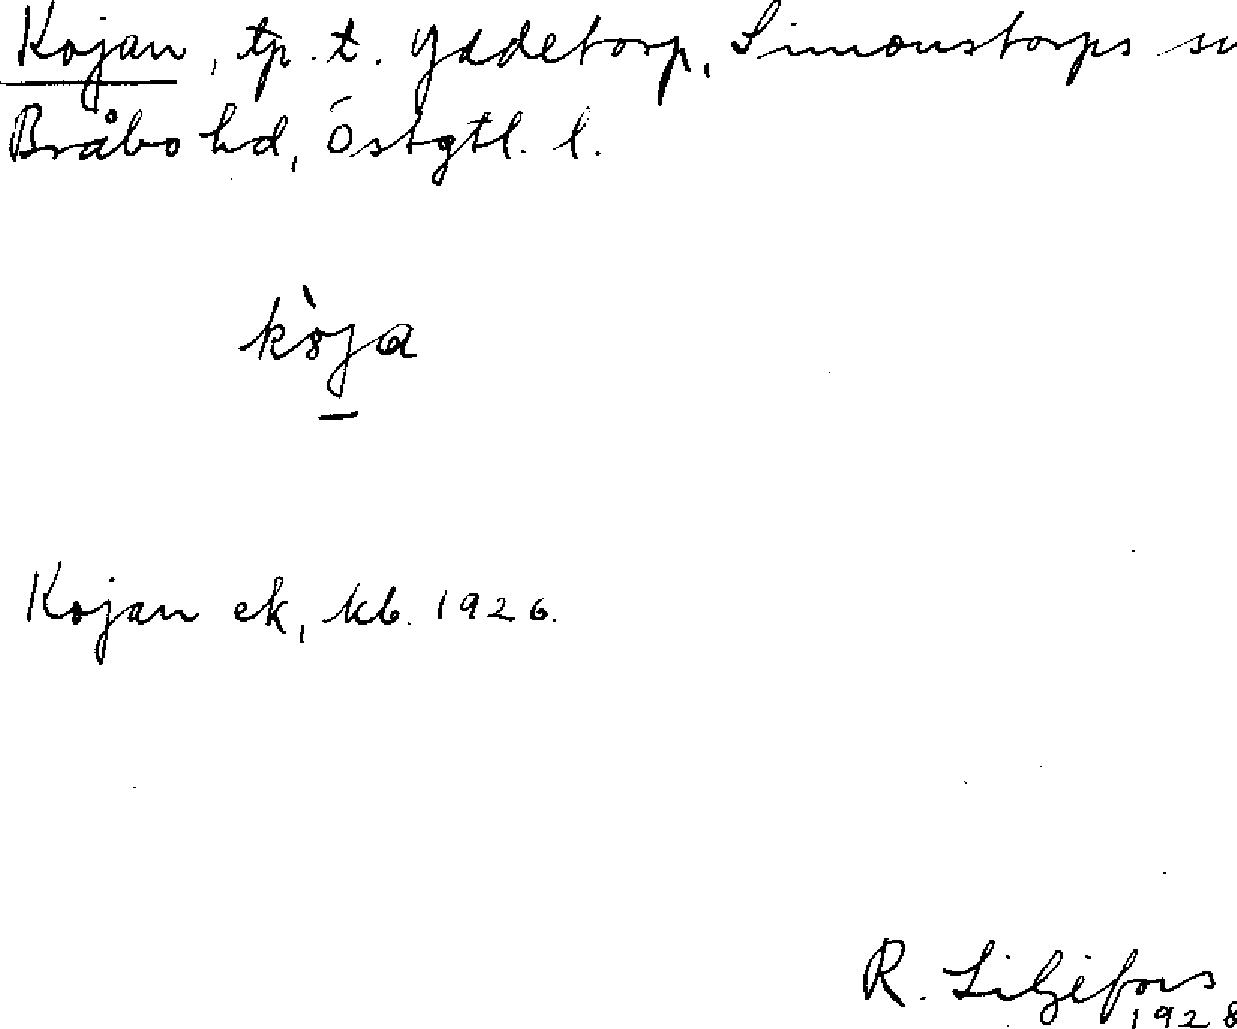 Kojan, tp. t. Yddetorp, Simonstorps sn
Bråbo hd, Östgtl. l.
kò̀ja
Kojan ek, kb. 1926.
R. Liljefors
1928